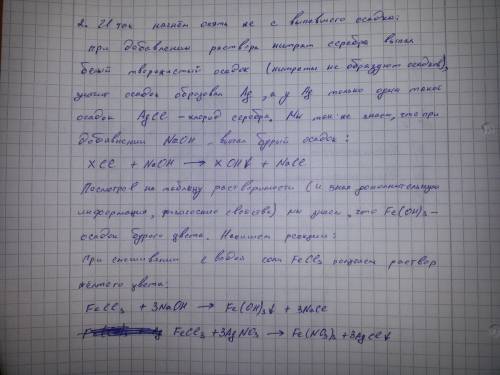 2. Итак начнём опять же с выпавшего осадка:
при добавлении раствора нитрат серебра выпал
белый творожистый осадок (нитраты не образуют осадков),
значит осадок образовал Ag, а у Ag только один такой
осадок AgCl - хлорид серебра. Мы так же знаем, что при
добавлении NaOH, выпал бурый осадок:
XCl + NaOH → XOH↓ + NaCl
Посмотрев на таблицу растворимости (и зная дополнительную
информация, физические свойства) мы знаем, что Fe(OH)3 -
осадок бурого цвета. Напишем реакции:
При смешивании с водой соли FeCl3 получаем раствор
жёлтого цвета:
FeCl3 + 3NaOH → Fe(OH)3↓ + 3NaCl
FeCl3 + 3AgNO3 → Fe(NO3)3 + 3AgCl↓